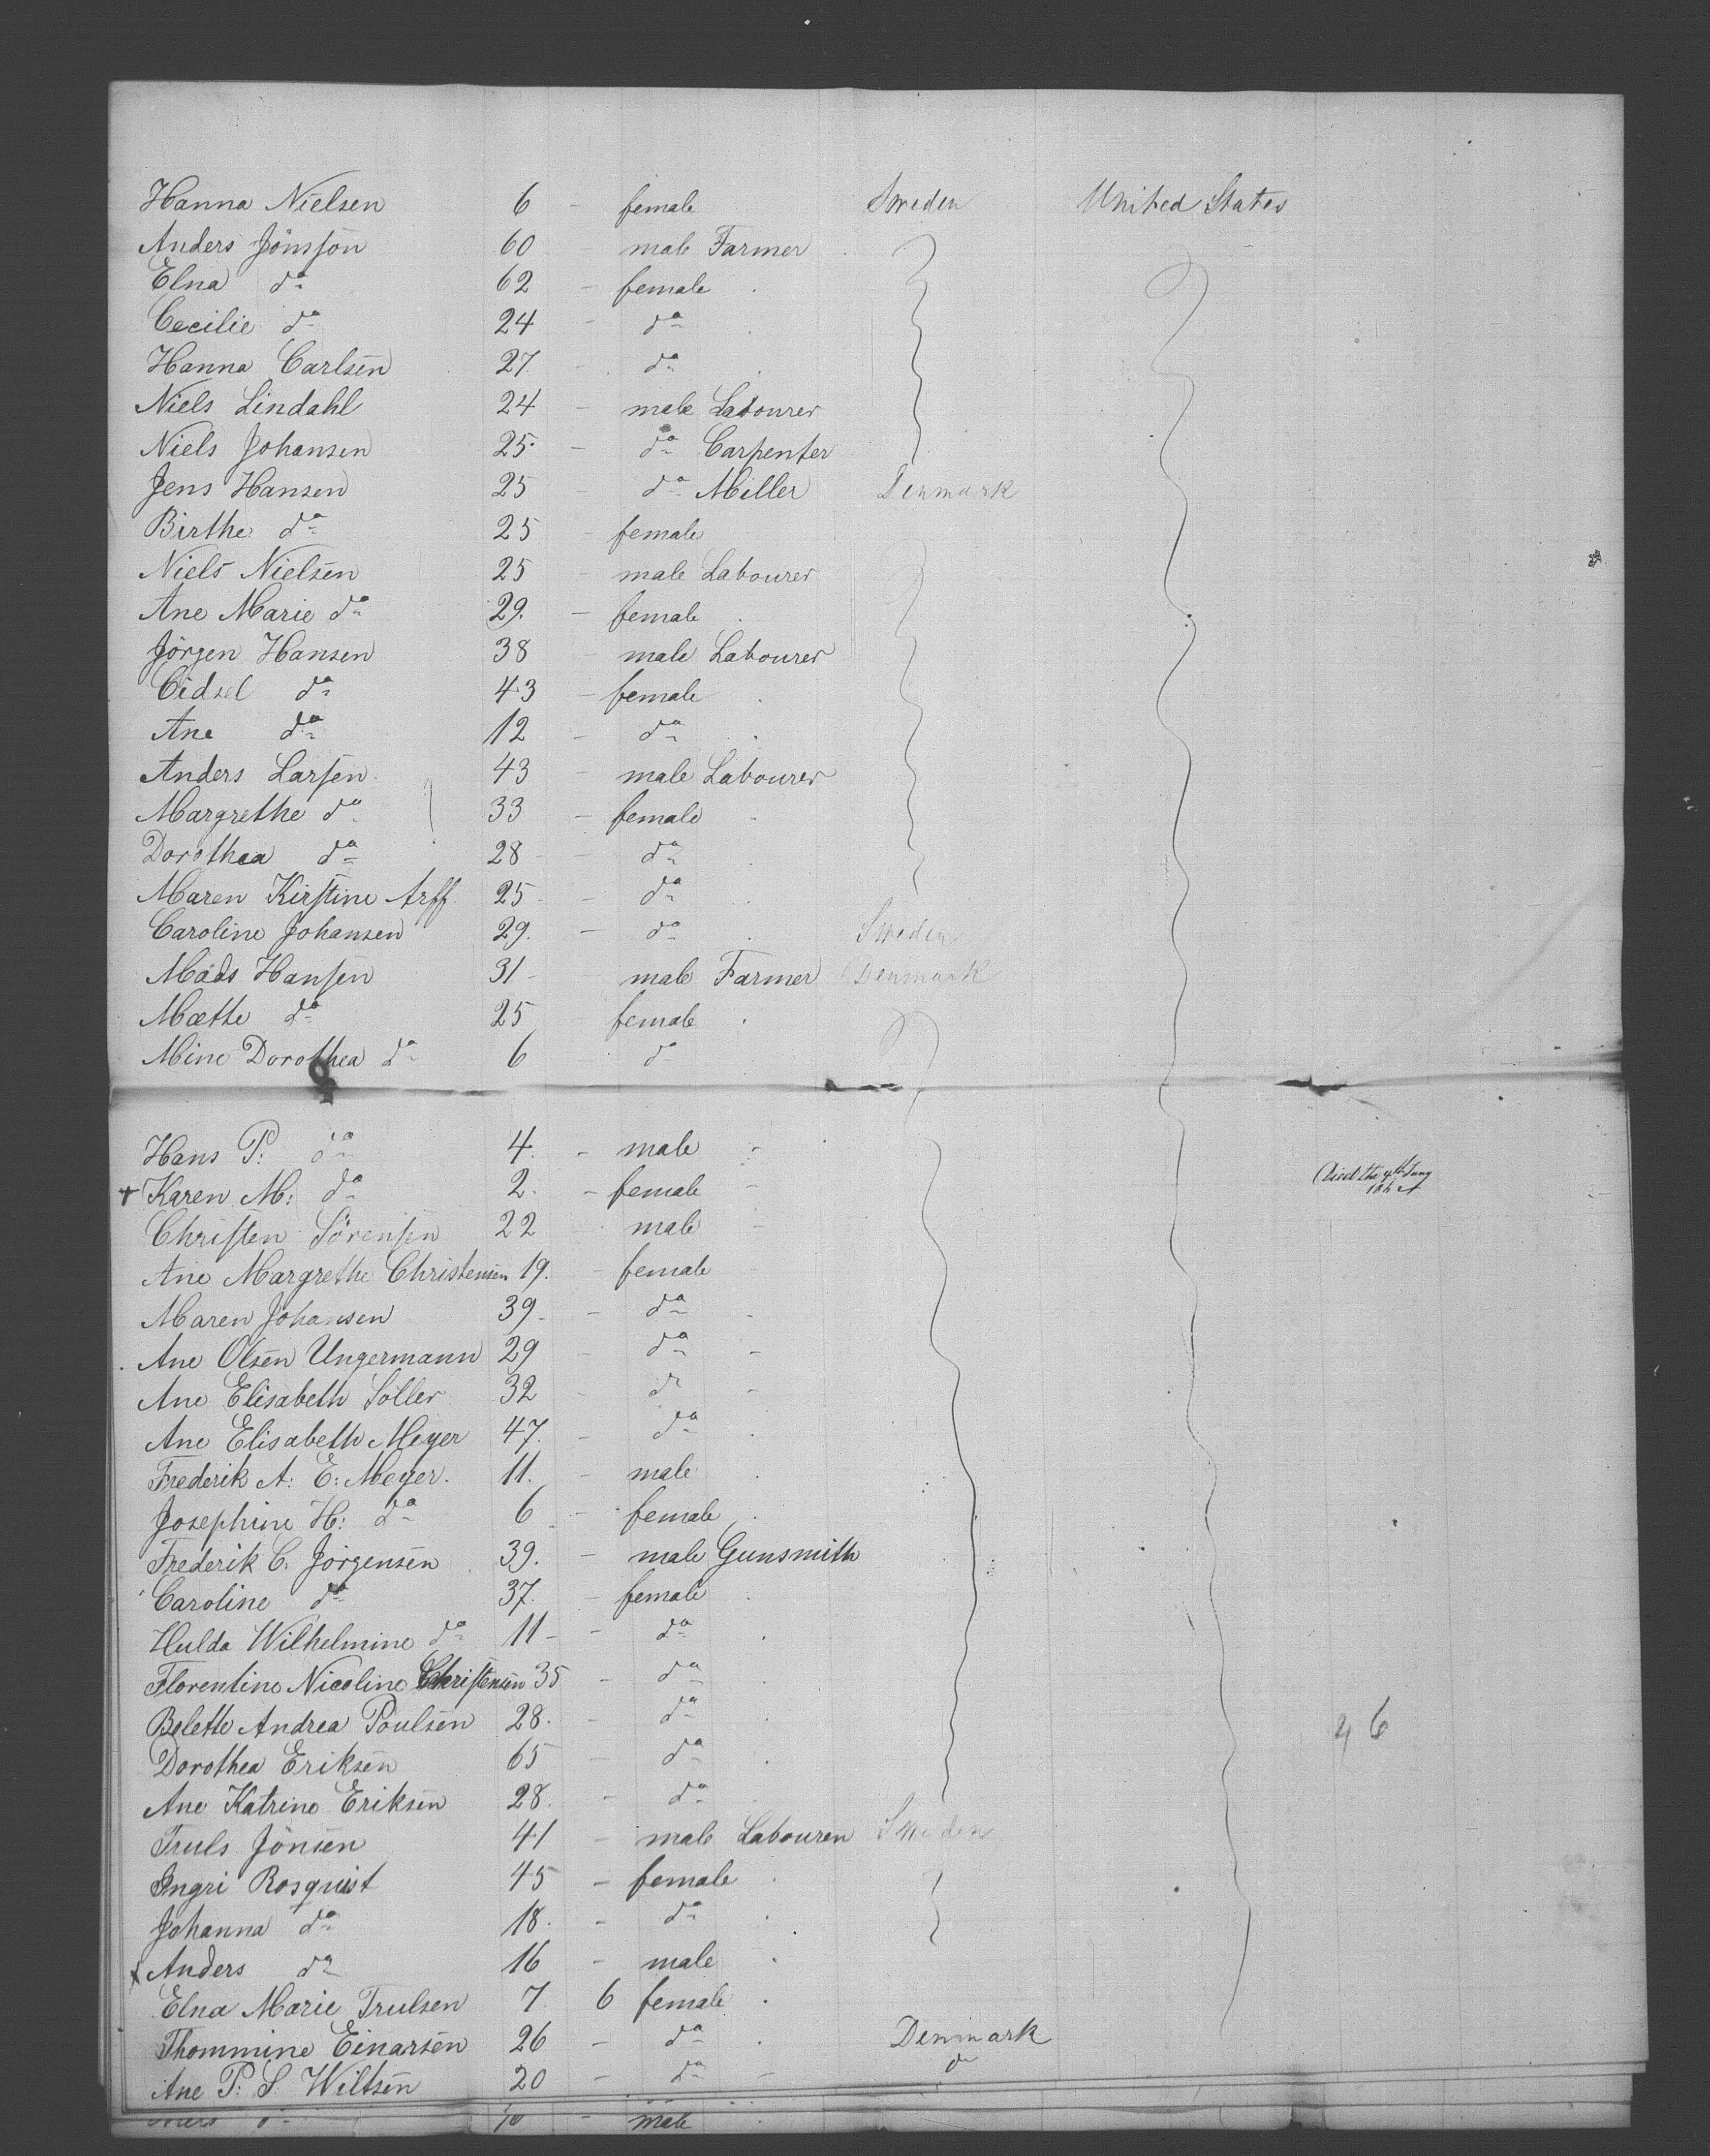 Hanna Nielsen 6 - female Sweden United States
Anders Jönsson 60 male Farmer
Elna do 62 - female
Cecilie do 24 - do
Hanna Carlsen 27 - do
Niels Lindahl 24 - male Labourer
Niels Johansen 25 - do Carpenter
Jens Hansen 25 - do Miller Denmark
Birthe do 25 - female
Niels Nielsen 25 - male Labourer
Ane Marie do 29. - female
Jörgen Hansen 38 - male Labourer
Cidsel do 43 - female
Ane do 12 - do
Anders Larsen 43 - male Labourer
Margrethe do 33 - female
Dorothea do 28 - do
Maren Kirstine Arff 25 - do
Caroline Johansen 29. - do Sweden
Mads Hansen 31 - male Farmer Denmark
Mætte do 25 female
Mine Dorothea do 6 do
Hans P: do 4. - male -
+ Karen M: do 2. - female - Died the 4th
Christen Sörensen 22 male -
Ane Margrethe Christensen 19. - female
Maren Johansen 39 - do -
Ane Olsen Ungermann 29 - do -
Ane Elisabeth Söller 32 - do -
Ane Elisabeth Meyer 47. - do
Frederik A: E: Meyer. 11. - male
Josephine H: do 6 - female
Frederik C. Jörgensen 39. - male Gunsmith
Caroline do 37. - female
Hulda Wilhelmine do 11 - do
Florentine Nicoline Christensen 35 - do
Belette Andrea Poulsen 28. - do 46
Dorothea Eriksen 65 - do
Ane Katrine Eriksen 28. - do
Truls Jönsen 41 - male Labouren Sweden
Ingri Rosquist 45 - female
Johanna do 18. - do
Anders do 16 - male
Elna Marie Trulsen 7 6 female
Thommine Einarsen 26 - do Denmark
Ane P: S. Wiltsen 20 - do - do
do - male